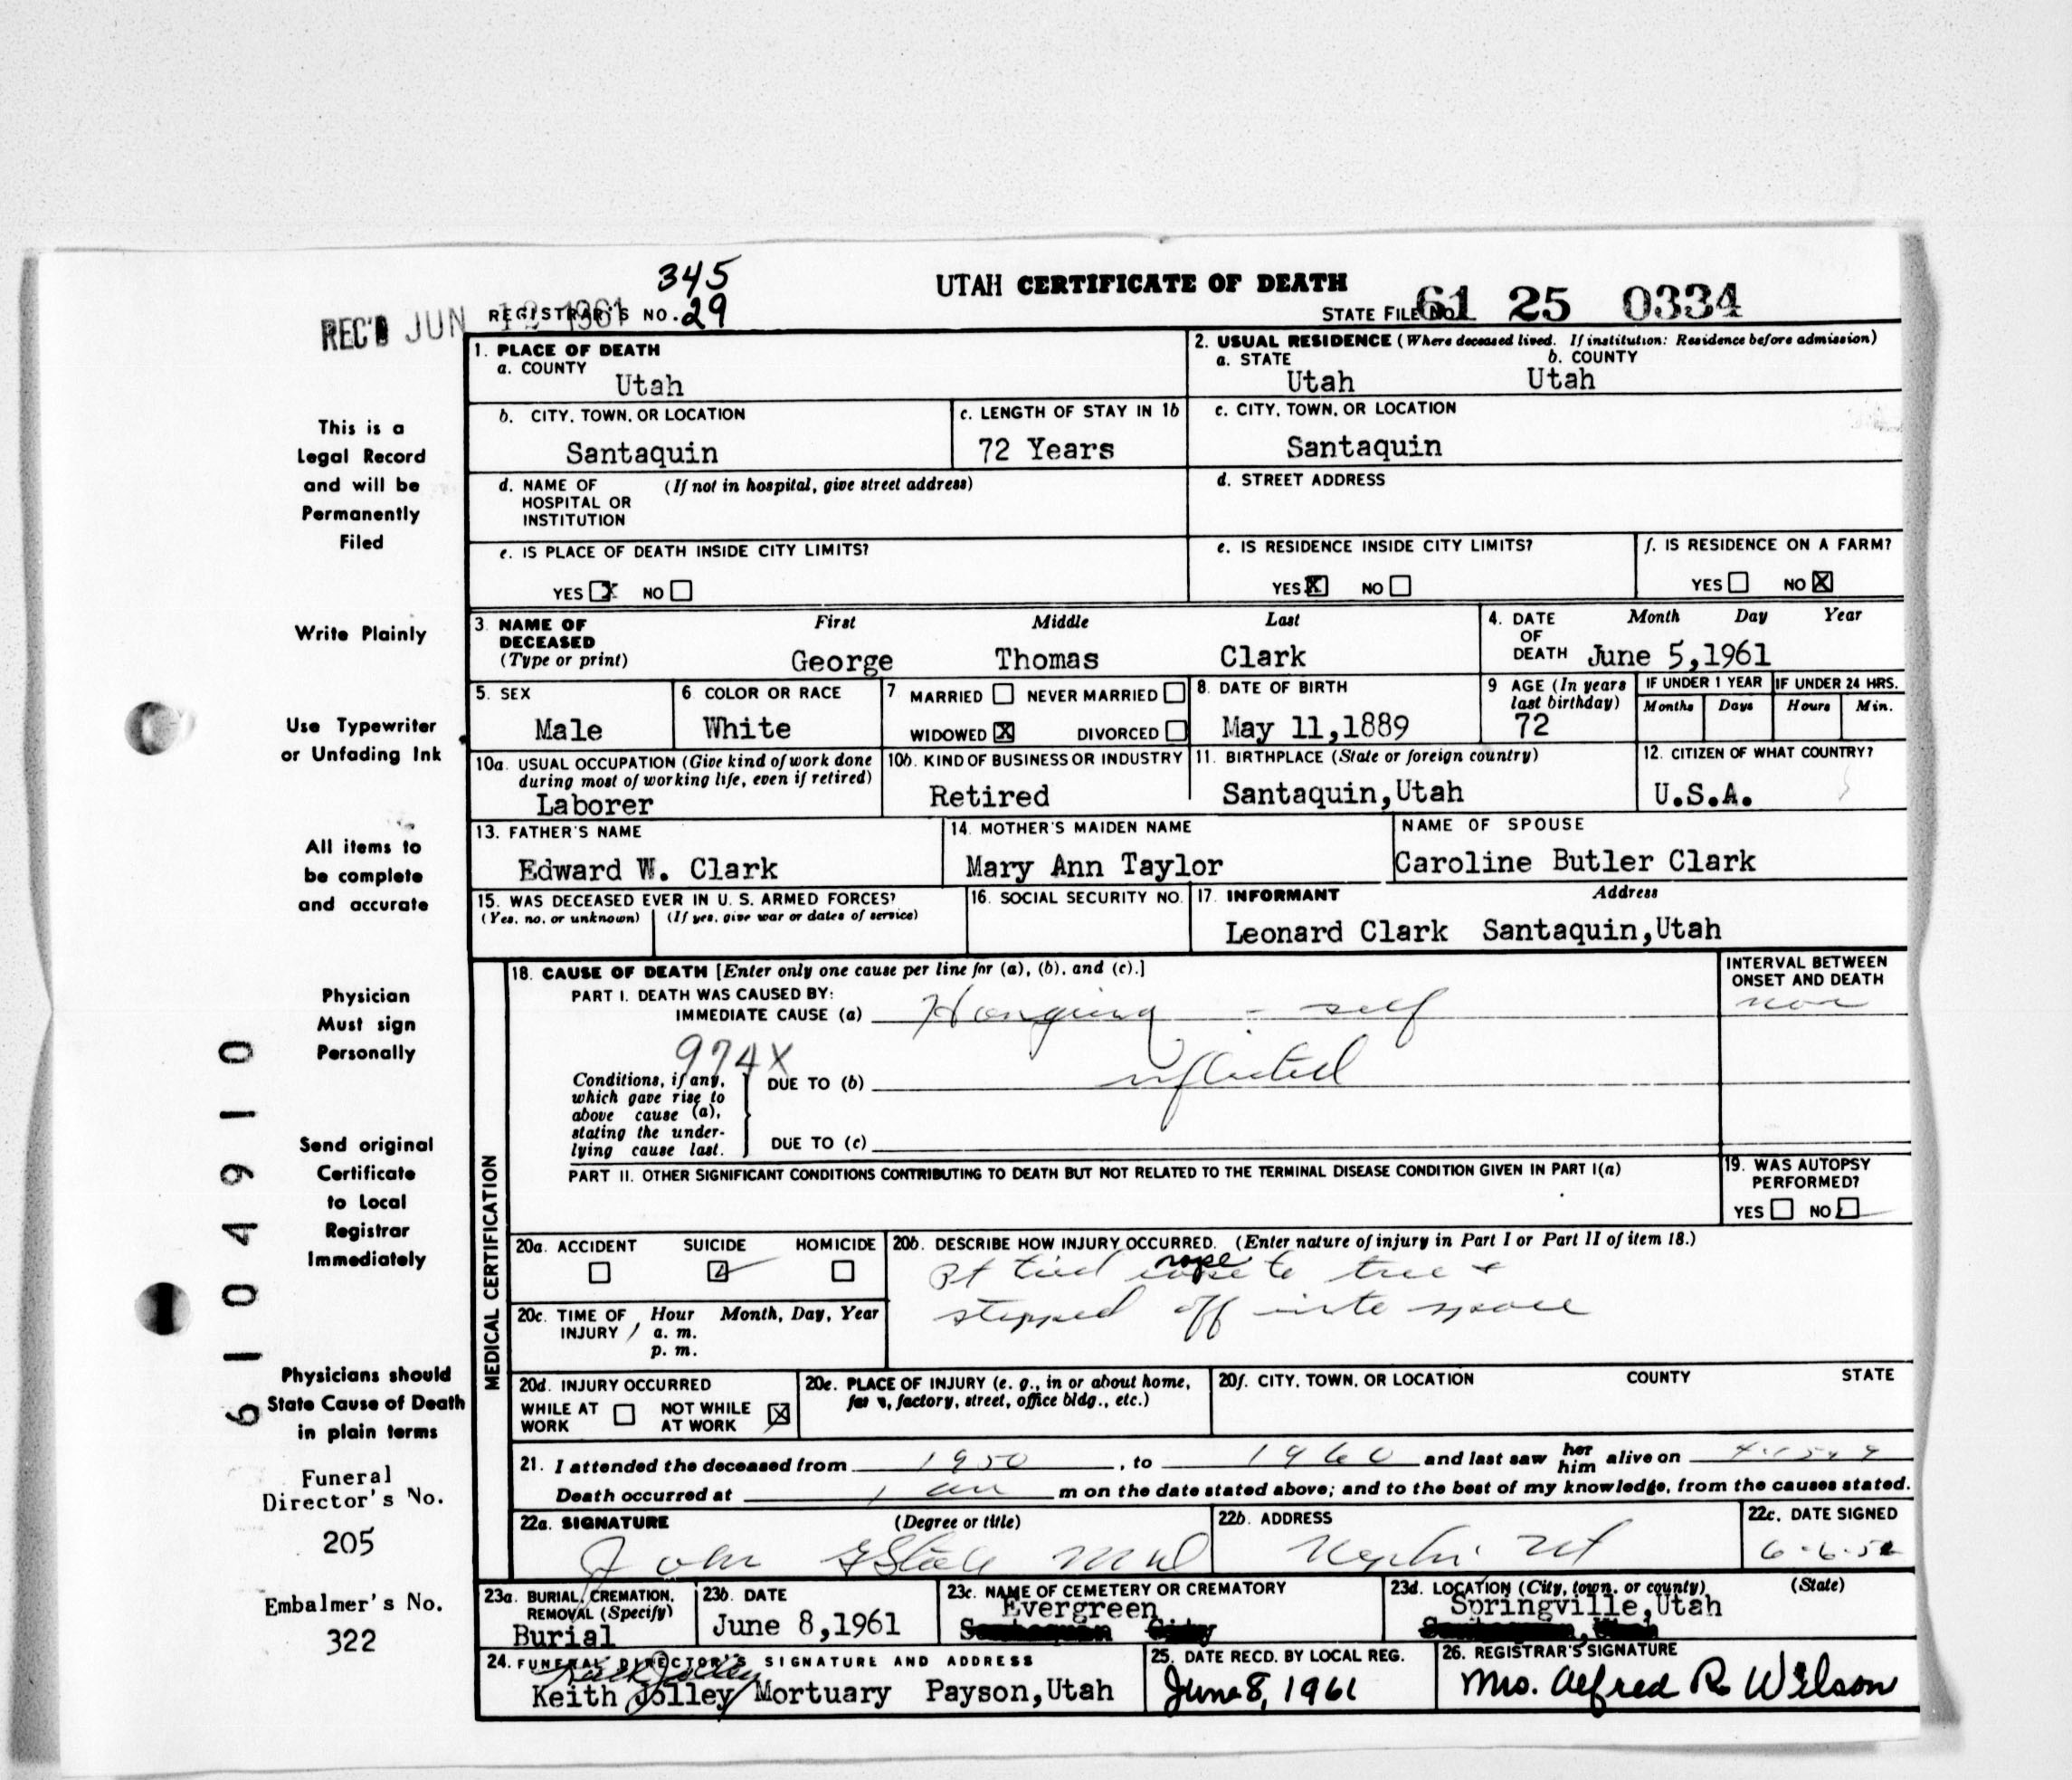 345
UTAH CERTIFICATE OF DEATH
REC'D JUN 12 1961 REGISTRAR'S NO. 29 STATE FILE No. 61 25 0334
1. PLACE OF DEATH
a. COUNTY
Utah
2. USUAL RESIDENCE (Where deceased lived. If institution: Residence before admission)
a. STATE b. COUNTY
Utah Utah
b. CITY, TOWN, OR LOCATION
Santaquin
c. LENGTH OF STAY IN 1b
72 Years
c. CITY, TOWN, OR LOCATION
Santaquin
d. NAME OF (If not in hospital, give street address)
HOSPITAL OR
INSTITUTION
d. STREET ADDRESS
e. IS PLACE OF DEATH INSIDE CITY LIMITS?
YES X NO
e. IS RESIDENCE INSIDE CITY LIMITS?
YES X NO
f. IS RESIDENCE ON A FARM?
YES NO X
3. NAME OF First Middle Last
DECEASED
(Type or print) George Thomas Clark
4. DATE Month Day Year
OF
DEATH June 5,1961
5. SEX
Male
6 COLOR OR RACE
White
7 MARRIED NEVER MARRIED
WIDOWED X DIVORCED
8. DATE OF BIRTH
May 11,1889
9 AGE (In years
last birthday)
72
IF UNDER 1 YEAR
Months Days
IF UNDER 24 HRS.
Hours Min.
10a. USUAL OCCUPATION (Give kind of work done
during most of working life, even if retired)
Laborer
10b. KIND OF BUSINESS OR INDUSTRY
Retired
11. BIRTHPLACE (State or foreign country)
Santaquin,Utah
12. CITIZEN OF WHAT COUNTRY?
U.S.A.
13. FATHER'S NAME
Edward W. Clark
14. MOTHER'S MAIDEN NAME
Mary Ann Taylor
NAME OF SPOUSE
Caroline Butler Clark
15. WAS DECEASED EVER IN U. S. ARMED FORCES?
(Yes, no, or unknown) (If yes, give war or dates of service)
16. SOCIAL SECURITY NO.
17. INFORMANT Address
Leonard Clark Santaquin,Utah
MEDICAL CERTIFICATION
18. CAUSE OF DEATH [Enter only one cause per line for (a), (b), and (c).]
PART I. DEATH WAS CAUSED BY:
IMMEDIATE CAUSE (a) Hanging - self
974X
Conditions, if any,
which gave rise to
above cause (a),
stating the under-
lying cause last.
DUE TO (b) inflicted
DUE TO (c)
INTERVAL BETWEEN
ONSET AND DEATH
PART II. OTHER SIGNIFICANT CONDITIONS CONTRIBUTING TO DEATH BUT NOT RELATED TO THE TERMINAL DISEASE CONDITION GIVEN IN PART I(a)
19. WAS AUTOPSY
PERFORMED?
YES NO
20a. ACCIDENT SUICIDE HOMICIDE
20b. DESCRIBE HOW INJURY OCCURRED. (Enter nature of injury in Part I or Part II of item 18.)
Pt tied rope to tree +
stepped off into space
20c. TIME OF Hour Month, Day, Year
INJURY a. m.
p. m.
20d. INJURY OCCURRED
WHILE AT NOT WHILE
WORK AT WORK X
20e. PLACE OF INJURY (e. g., in or about home,
farm, factory, street, office bldg., etc.)
20f. CITY, TOWN, OR LOCATION COUNTY STATE
21. I attended the deceased from 1950, to 1960 and last saw her him alive on
Death occurred at 1 am m on the date stated above; and to the best of my knowledge, from the causes stated.
22a. SIGNATURE (Degree or title)
John MD
22b. ADDRESS
Nephi Ut
22c. DATE SIGNED
23a. BURIAL, CREMATION,
REMOVAL (Specify)
Burial
23b. DATE
June 8,1961
23c. NAME OF CEMETERY OR CREMATORY
Evergreen
23d. LOCATION (City, town, or county) (State)
Springville,Utah
24. FUNERAL DIRECTOR'S SIGNATURE AND ADDRESS
Keith Jolley
Keith Jolley Mortuary Payson,Utah
25. DATE RECD. BY LOCAL REG.
June 8, 1961
26. REGISTRAR'S SIGNATURE
Mrs. Alfred R. Wilson
This is a
Legal Record
and will be
Permanently
Filed
Write Plainly
Use Typewriter
or Unfading Ink
All items to
be complete
and accurate
Physician
Must sign
Personally
Send original
Certificate
to Local
Registrar
Immediately
Physicians should
State Cause of Death
in plain terms
Funeral
Director's No.
205
Embalmer's No.
322
6104910